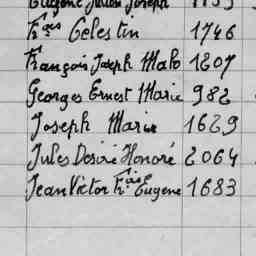 Eugène Julien Joseph
Fçois Celestin 1746
François Joseph Malo 1207
Georges Ernest Marie 982
Joseph Marie 1629
Jules Desiré Honoré 2064
Jean Victor Fçois Eugene 1683